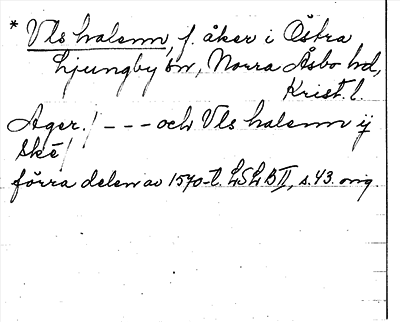 * Vls halsnn, f. åker i Östra
Ljungby sn, Norra Åsbo hd,
Krist. l.
Ager./ --- och Vls halsnn ij
Ske/
förra delen av 1570-t. LSLB II, s. 43. orig.